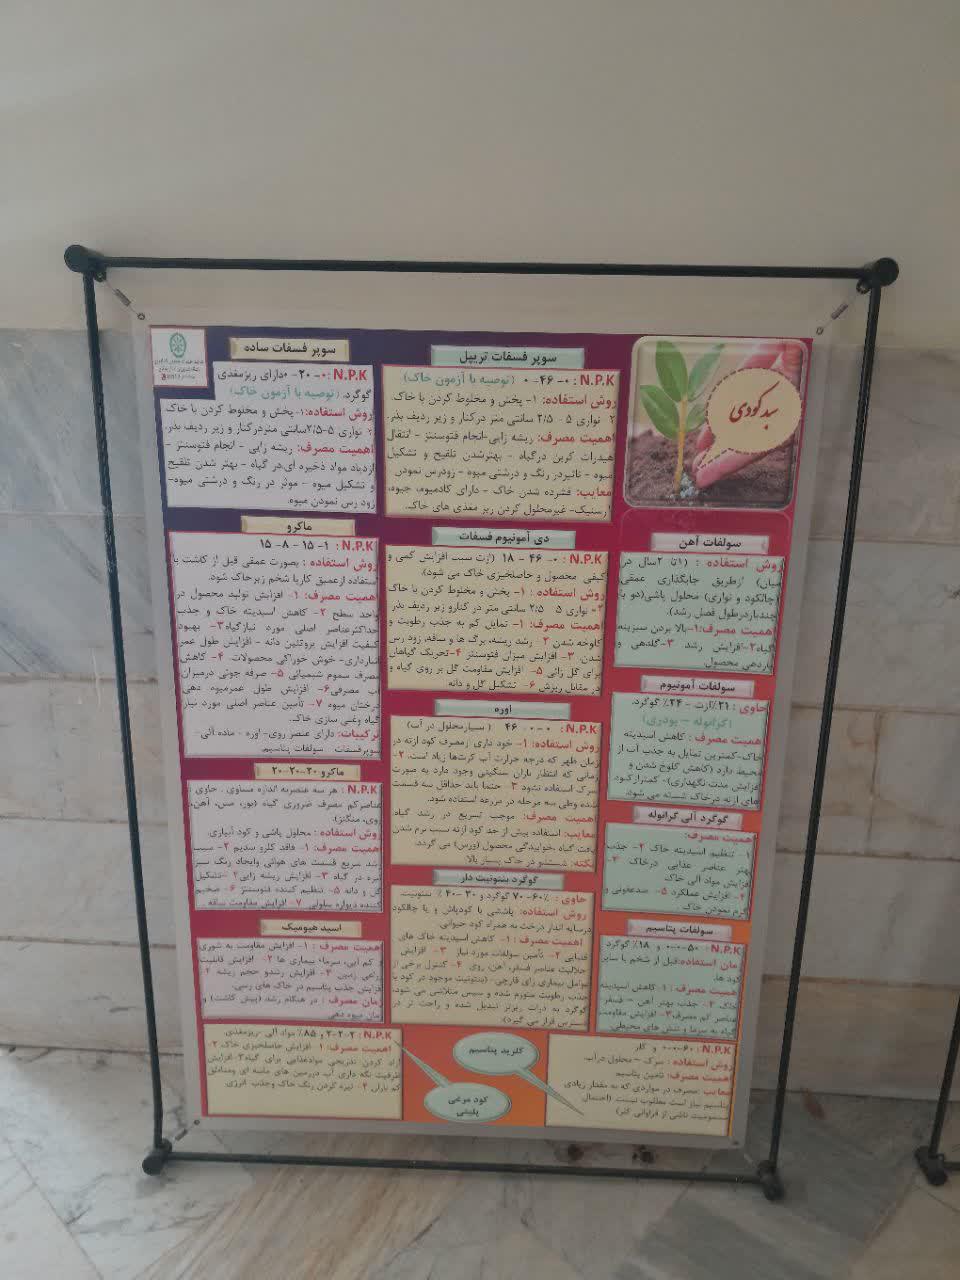 سبد کودی
سوپر فسفات ساده
N.P.K: ۰- ۲۰- ۰دارای ریزمغذی
گوگرد. (توصیه با آزمون خاک)
روش استفاده:۱-پخش و مخلوط کردن با خاک
۲- نواری ۵-۲/۵سانتی متردرکنار و زیر ردیف بذر.
اهمیت مصرف: ریشه زایی - انجام فتوسنتز -
ازدیاد مواد ذخیره ای،در گیاه - بهتر شدن تلقیح
و تشکیل میوه - موثر در رنگ و درشتی میوه-
زود رس نمودن میوه.
سوپر فسفات تریپل
N.P.K: ۰- ۴۶- ۰ (توصیه با آزمون خاک)
روش استفاده: ۱- پخش و مخلوط کردن با خاک.
۲ نواری ۵ - ۲/۵ سانتی متر درکنار و زیر ردیف بذر.
اهمیت مصرف: ریشه زایی -انجام فتوسنتز - انتقال
هیدرات کربن درگیاه - بهترشدن تلقیح و تشکیل
میوه - تاثیردر رنگ و درشتی میوه - زودرس نمودن
معایب: فشرده شدن خاک - دارای کادمیوم، جیوه،
ارسنیک- غیرمحلول کردن ریز مغذی های خاک.
سولفات آهن
روش استفاده : (۱تا ۲سال در
میان) ازطریق جایگذاری عمقی
(چالکود و نواری) محلول پاشی(دو یا
چندباردرطول فصل رشد).
اهمیت مصرف:۱-بالا بردن سبزینه
گیاه۲-افزایش رشد ۳-گلدهی و
باردهی محصول
ماکرو
N.P.K: ۱- ۱۵ - ۸- ۱۵
روش استفاده: بصورت عمقی قبل از کاشت با
استفاده ازعمیق کاریا شخم زیرخاک شود.
اهمیت مصرف: ۱- افزایش تولید محصول در
واحد سطح ۲- کاهش اسیدیته خاک و جذب
حداکثرعناصر اصلی مورد نیازگیاه۳- بهبود
کیفیت افزایش پروتئین دانه - افزایش طول عمر
انبارداری- خوش خوراکی محصولات. ۴- کاهش
مصرف سموم شیمیائی ۵- صرفه جوئی درمیزان
آب مصرفی۶- افزایش طول عمرمیوه دهی
درختان میوه ۷- تأمین عناصر اصلی مورد نیاز
گیاه وغنی سازی خاک.
ترکیبات: دارای عنصر روی- اوره - ماده آلی-
سوپرفسفات سولفات پتاسیم.
دی آمونیوم فسفات
N.P.K: ۰- ۴۶ - ۱۸ (ازت سبب افزایش کمی و
کیفی محصول و حاصلخیزی خاک می شود).
روش استفاده : ۱- پخش و مخلوط کردن با خاک
۲- نواری ۵ - ۲/۵ سانتی متر در کنارو زیر ردیف بذر
اهمیت مصرف: ۱- تمایل کم به جذب رطوبت و
کلوخه شدن ۲ - رشد ریشه، برگ ها و ساقه، زود رس
شدن ۳- افزایش میزان فتوسنتز ۴-تحریک گیاهان
برای گل زائی ۵- افزایش مقاومت گل بر روی گیاه و
در مقابل ریزش ۶- تشکیل گل و دانه
سولفات آمونیوم
حاوی : ۲۱٪ازت - ۲۴٪ گوگرد.
(گرانوله - پودری)
اهمیت مصرف : کاهش اسیدیته
خاک-کمترین تمایل به جذب آب از
محیط دارد (کاهش کلوخ شدن و
افزایش مدت نگهداری)- کمترازکود
های ازته درخاک شسته می شود.
اوره
N.P.K: ۰ - ۰ - ۴۶ (بسیارمحلول در آب)
روش استفاده: ۱- خود داری ازمصرف کود ازته در
زمان ظهر که درجه حرارت آب کرت‌ها زیاد است. ۲-
زمانی که انتظار باران سنگینی وجود دارد به صورت
سرک استفاده نشود ۳- حتما باید حداقل سه قسمت
شده وطی سه مرحله در مزرعه استفاده شود.
اهمیت مصرف: موجب تسریع در رشد گیاه.
معایب: استفاده بیش از حد کود ازته سبب نرم شدن
بافت گیاه ،خوابیدگی محصول (ورس) می گردد.
نکته: شستشو در خاک بسیار بالا
ماکرو ۲۰-۲۰-۲۰
N.P.K : هر سه عنصربه اندازه مساوی . حاوی :
عناصرکم مصرف ضروری گیاه (بور، مس، آهن،
روی، منگنز).
روش استفاده : محلول پاشی و کود آبیاری.
اهمیت مصرف: ۱- فاقد کلرو سدیم ۲- سبب
رشد سریع قسمت های هوائی وایجاد رنگ سبز
تیره در گیاه ۳- افزایش ریشه زایی۴ -تشکیل
گل و دانه ۵- تنظیم کننده فتوسنتز ۶- ضخیم
کننده دیواره سلولی ۷- افزایش مقاومت ساقه .
گوگرد آلی گرانوله
اهمیت مصرف:
۱- تنظیم اسیدیته خاک ۲- جذب
بهتر عناصر غذایی درخاک ۳-
افزایش مواد آلی خاک
۴- افزایش عملکرد ۵- ضدعفونی و
گرم نمودن خاک.
گوگرد بنتونیت دار
حاوی : ۶۰٪- ۷۰ گوگرد و ۳۰ -۴۰ ٪ بنتونیت
روش استفاده: پاششی با کودپاش و یا چالکود
درسایه انداز درخت به همراه کود حیوانی.
اهمیت مصرف :۱- کاهش اسیدیته خاک های
قلیایی ۲- تأمین سولفات مورد نیاز ۳- افزایش
حلالیت عناصر فسفر، آهن، روی ۴-کنترل برخی از
عوامل بیماری زای قارچی. (بنتونیت موجود در کود با
جذب رطوبت متورم شده و سپس متلاشی می شود،
گوگرد به ذرات ریزتر تبدیل شده و راحت تر در
دسترس قرار می گیرد).
سولفات پتاسیم
N.P.K: ۵۰-۰-۰ و ۱۸٪ گوگرد
زمان استفاده:قبل از شخم با سایر
کود ها.
اهمیت مصرف: ۱- کاهش اسیدیته
خاک ۲- جذب بهتر آهن - فسفر-
عناصر کم مصرف۳- افزایش مقاومت
گیاه به سرما و تنش های محیطی
اسید هیومیک
اهمیت مصرف : ۱- افزایش مقاومت به شوری
و کم آبی، سرما، بیماری ها ۲- افزایش قابلیت
زراعی زمین ۳- افزایش رشدو حجم ریشه ۴-
افزایش جذب پتاسیم در خاک های رسی.
زمان مصرف : در هنگام رشد (پیش کاشت) و
زمان میوه دهی
N.P.K: ۲-۲-۳ و ۸۵٪ مواد آلی -ریزمغذی.
اهمیت مصرف: ۱- افزایش حاصلخیزی خاک ۲-
آزاد کردن تدریجی موادغذایی برای گیاه۳-افزایش
ظرفیت نگه داری آب درزمین های ماسه ای ومناطق
کم باران ۴- تیره کردن رنگ خاک وجذب انرژی
کلرید پتاسیم
کود مرغی
پلیتی
N.P.K: ۶۰-۰-۰ و کلر
روش استفاده : سرک -محلول درآب.
اهمیت مصرف: تامین پتاسیم
معایب :مصرف در مواردی که به مقدار زیادی
پتاسیم نیاز است مطلوب نیست. (احتمال
مسمومیت ناشی از فراوانی کلر)